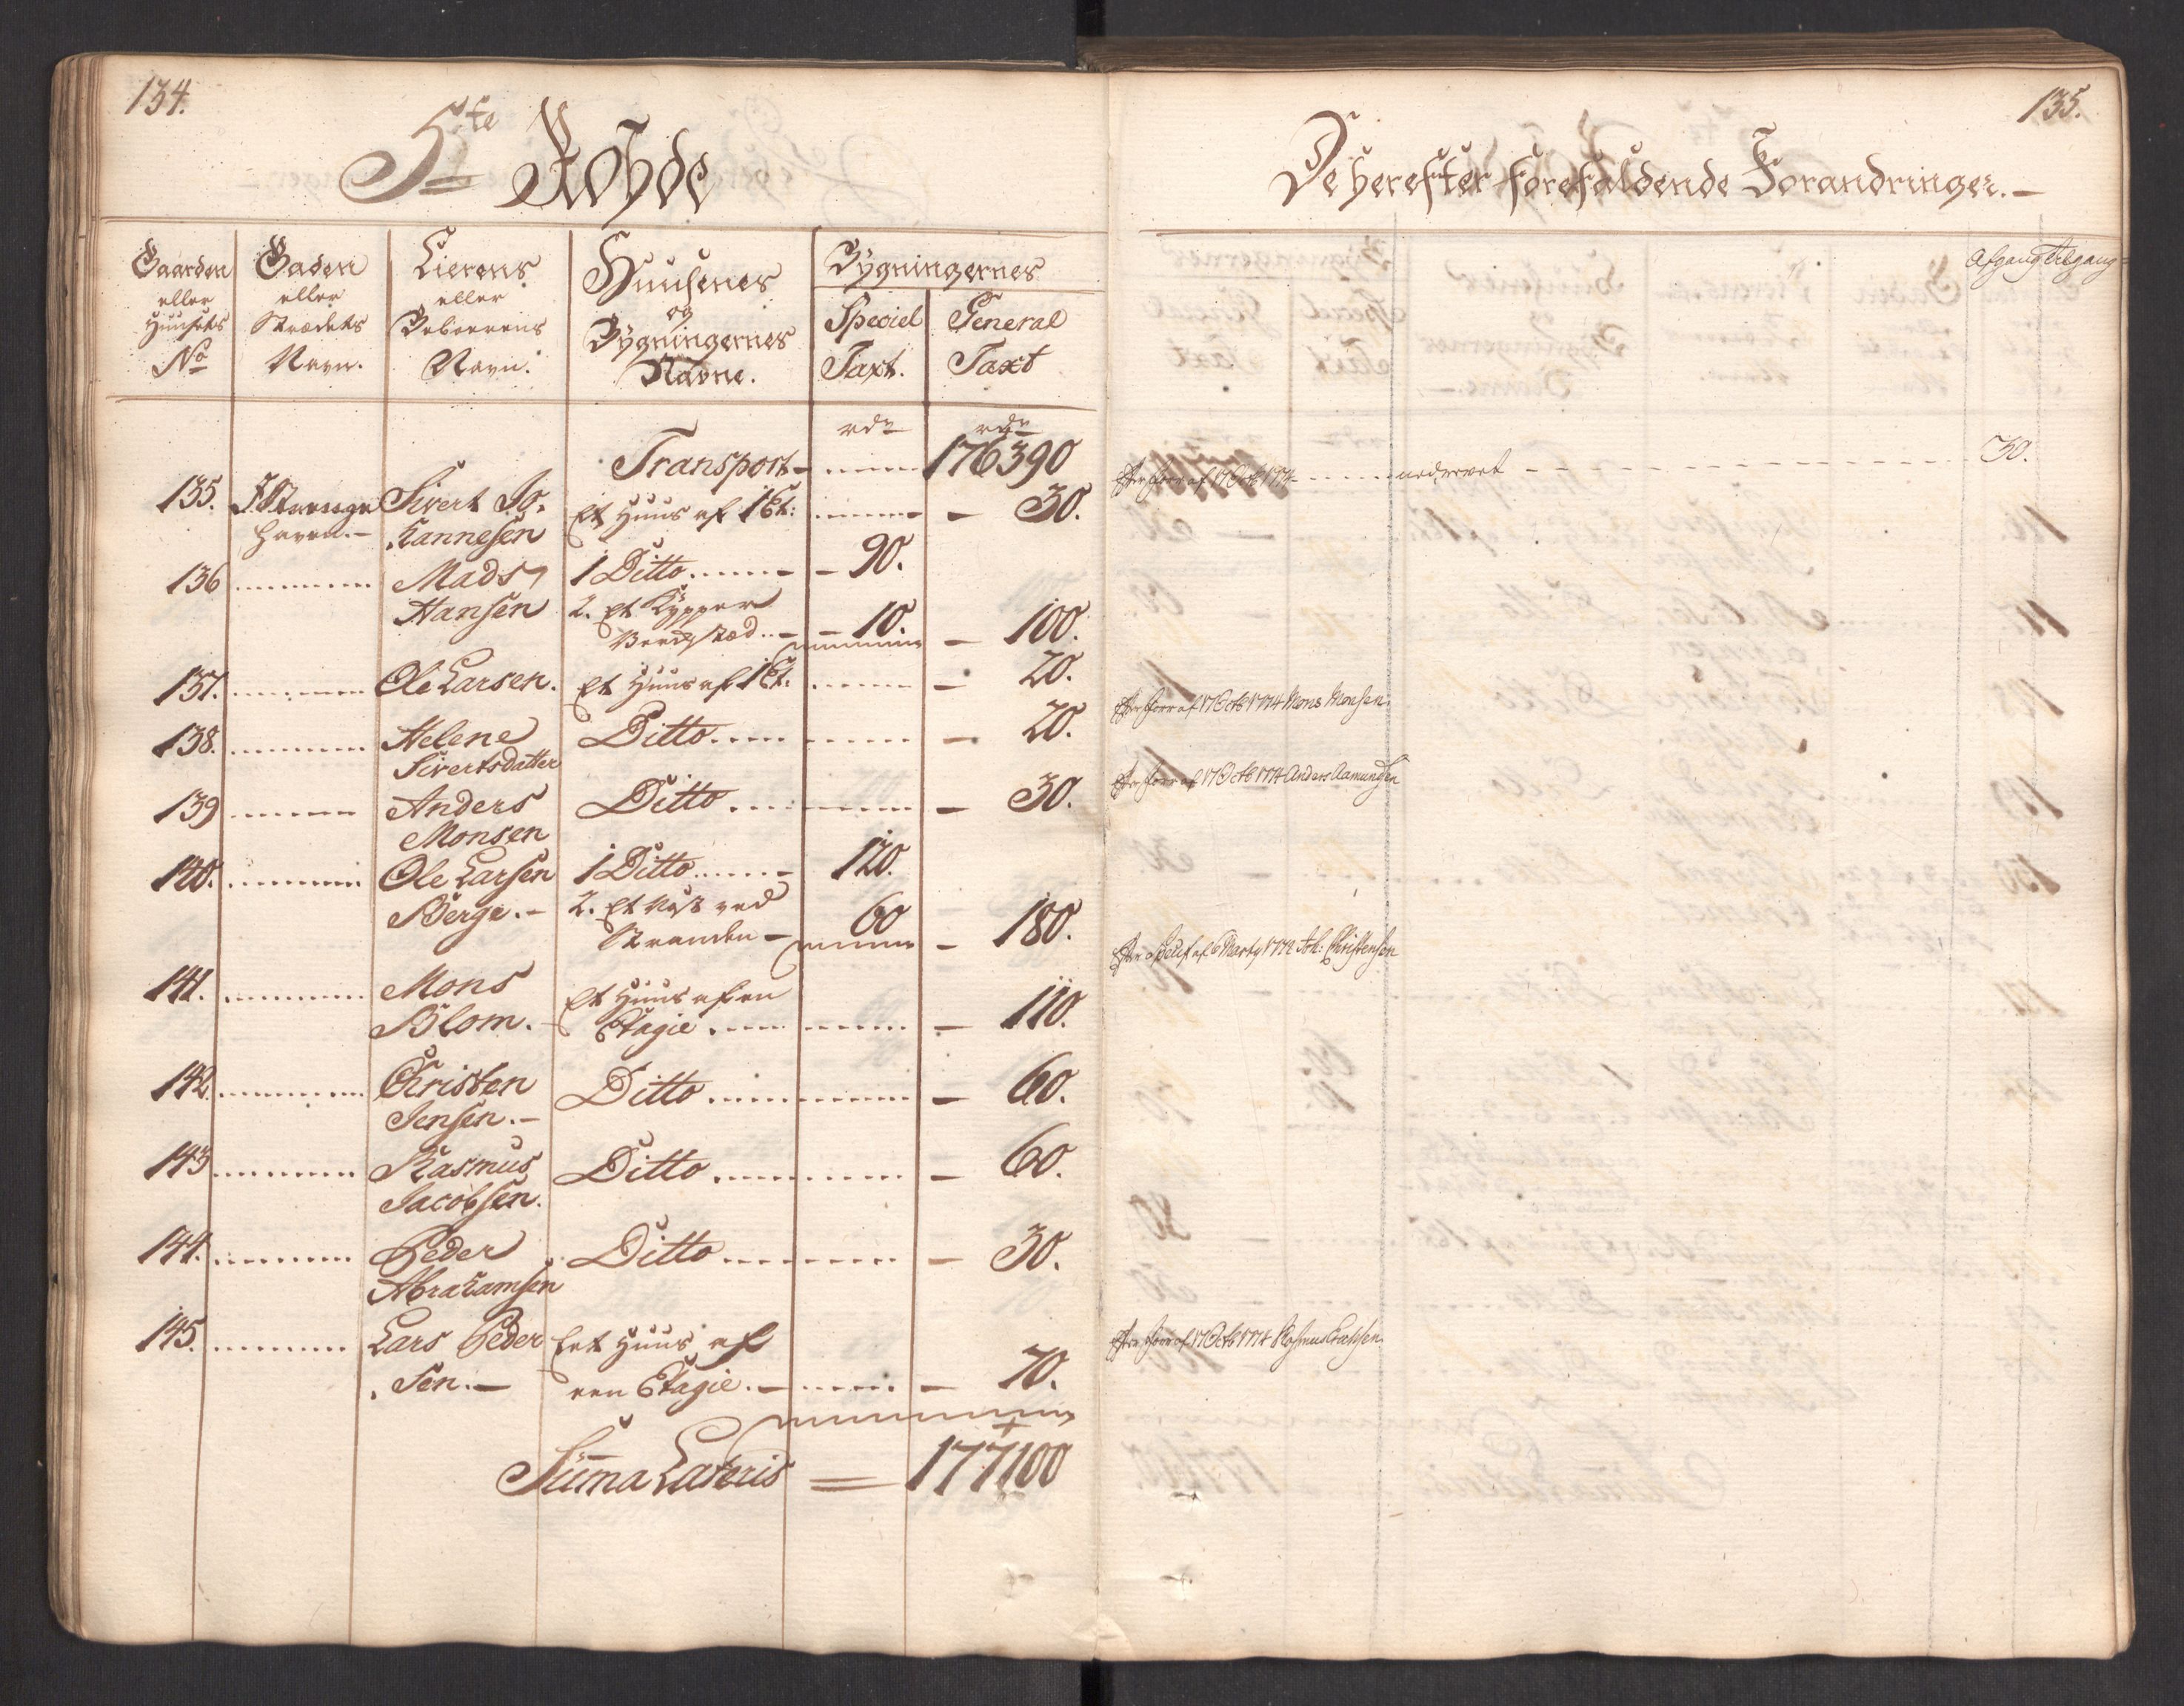 134.
5te Rohde
Gaarden eller Huusets No
Gaden eller Strædets Navn.
Eierens eller Beboerens Navn.
Huusenes og Bygningernes Navne.
Bygningernes
Speciel Taxt.
General Taxt
rdr rdr
Transport - 176390
135. I Strange Sivert Jo- Et Huus af 1 Et: - 30.
havn.- hannesen
136 Mads 1 Ditto - 90.
Hansen 2. Et Kypper
Verchsted - 10. - 100.
137. Ole Larsen. Et Huus af 1 Et. - 20.
138. Helene Ditto - 20.
Sivertsdatter
139 Anders Ditto - 30.
Monsen
140. Ole Larsen 1 Ditto - 120.
Berge.- 2. Et Nøst ved
Stranden - 60 - 180.
141. Mons Et Huus af en
Blom. Etagie - 110.
142. Christen Ditto - 60.
Jensen.-
143 Rasmus Ditto - 60.
Jacobsen.
144. Peder Ditto - 30.
Abrahamsen
145. Lars Peder Eet Huus af
sen.- een Etagie. - 70.
Suma Lateris = 177100
135.
De herefter forefaldende Forandringer.-
Afgang Tilgang
forr af 17 Octb 1774 - nedrevet - 30.
forr af 17 Octb 1774 Mons Monsen
forr af 17 Octb 1774 Anders Aamundsen
af 6 Marty 1772 Joh: Christensen
forr af 17 Octb 1774 Rasmus